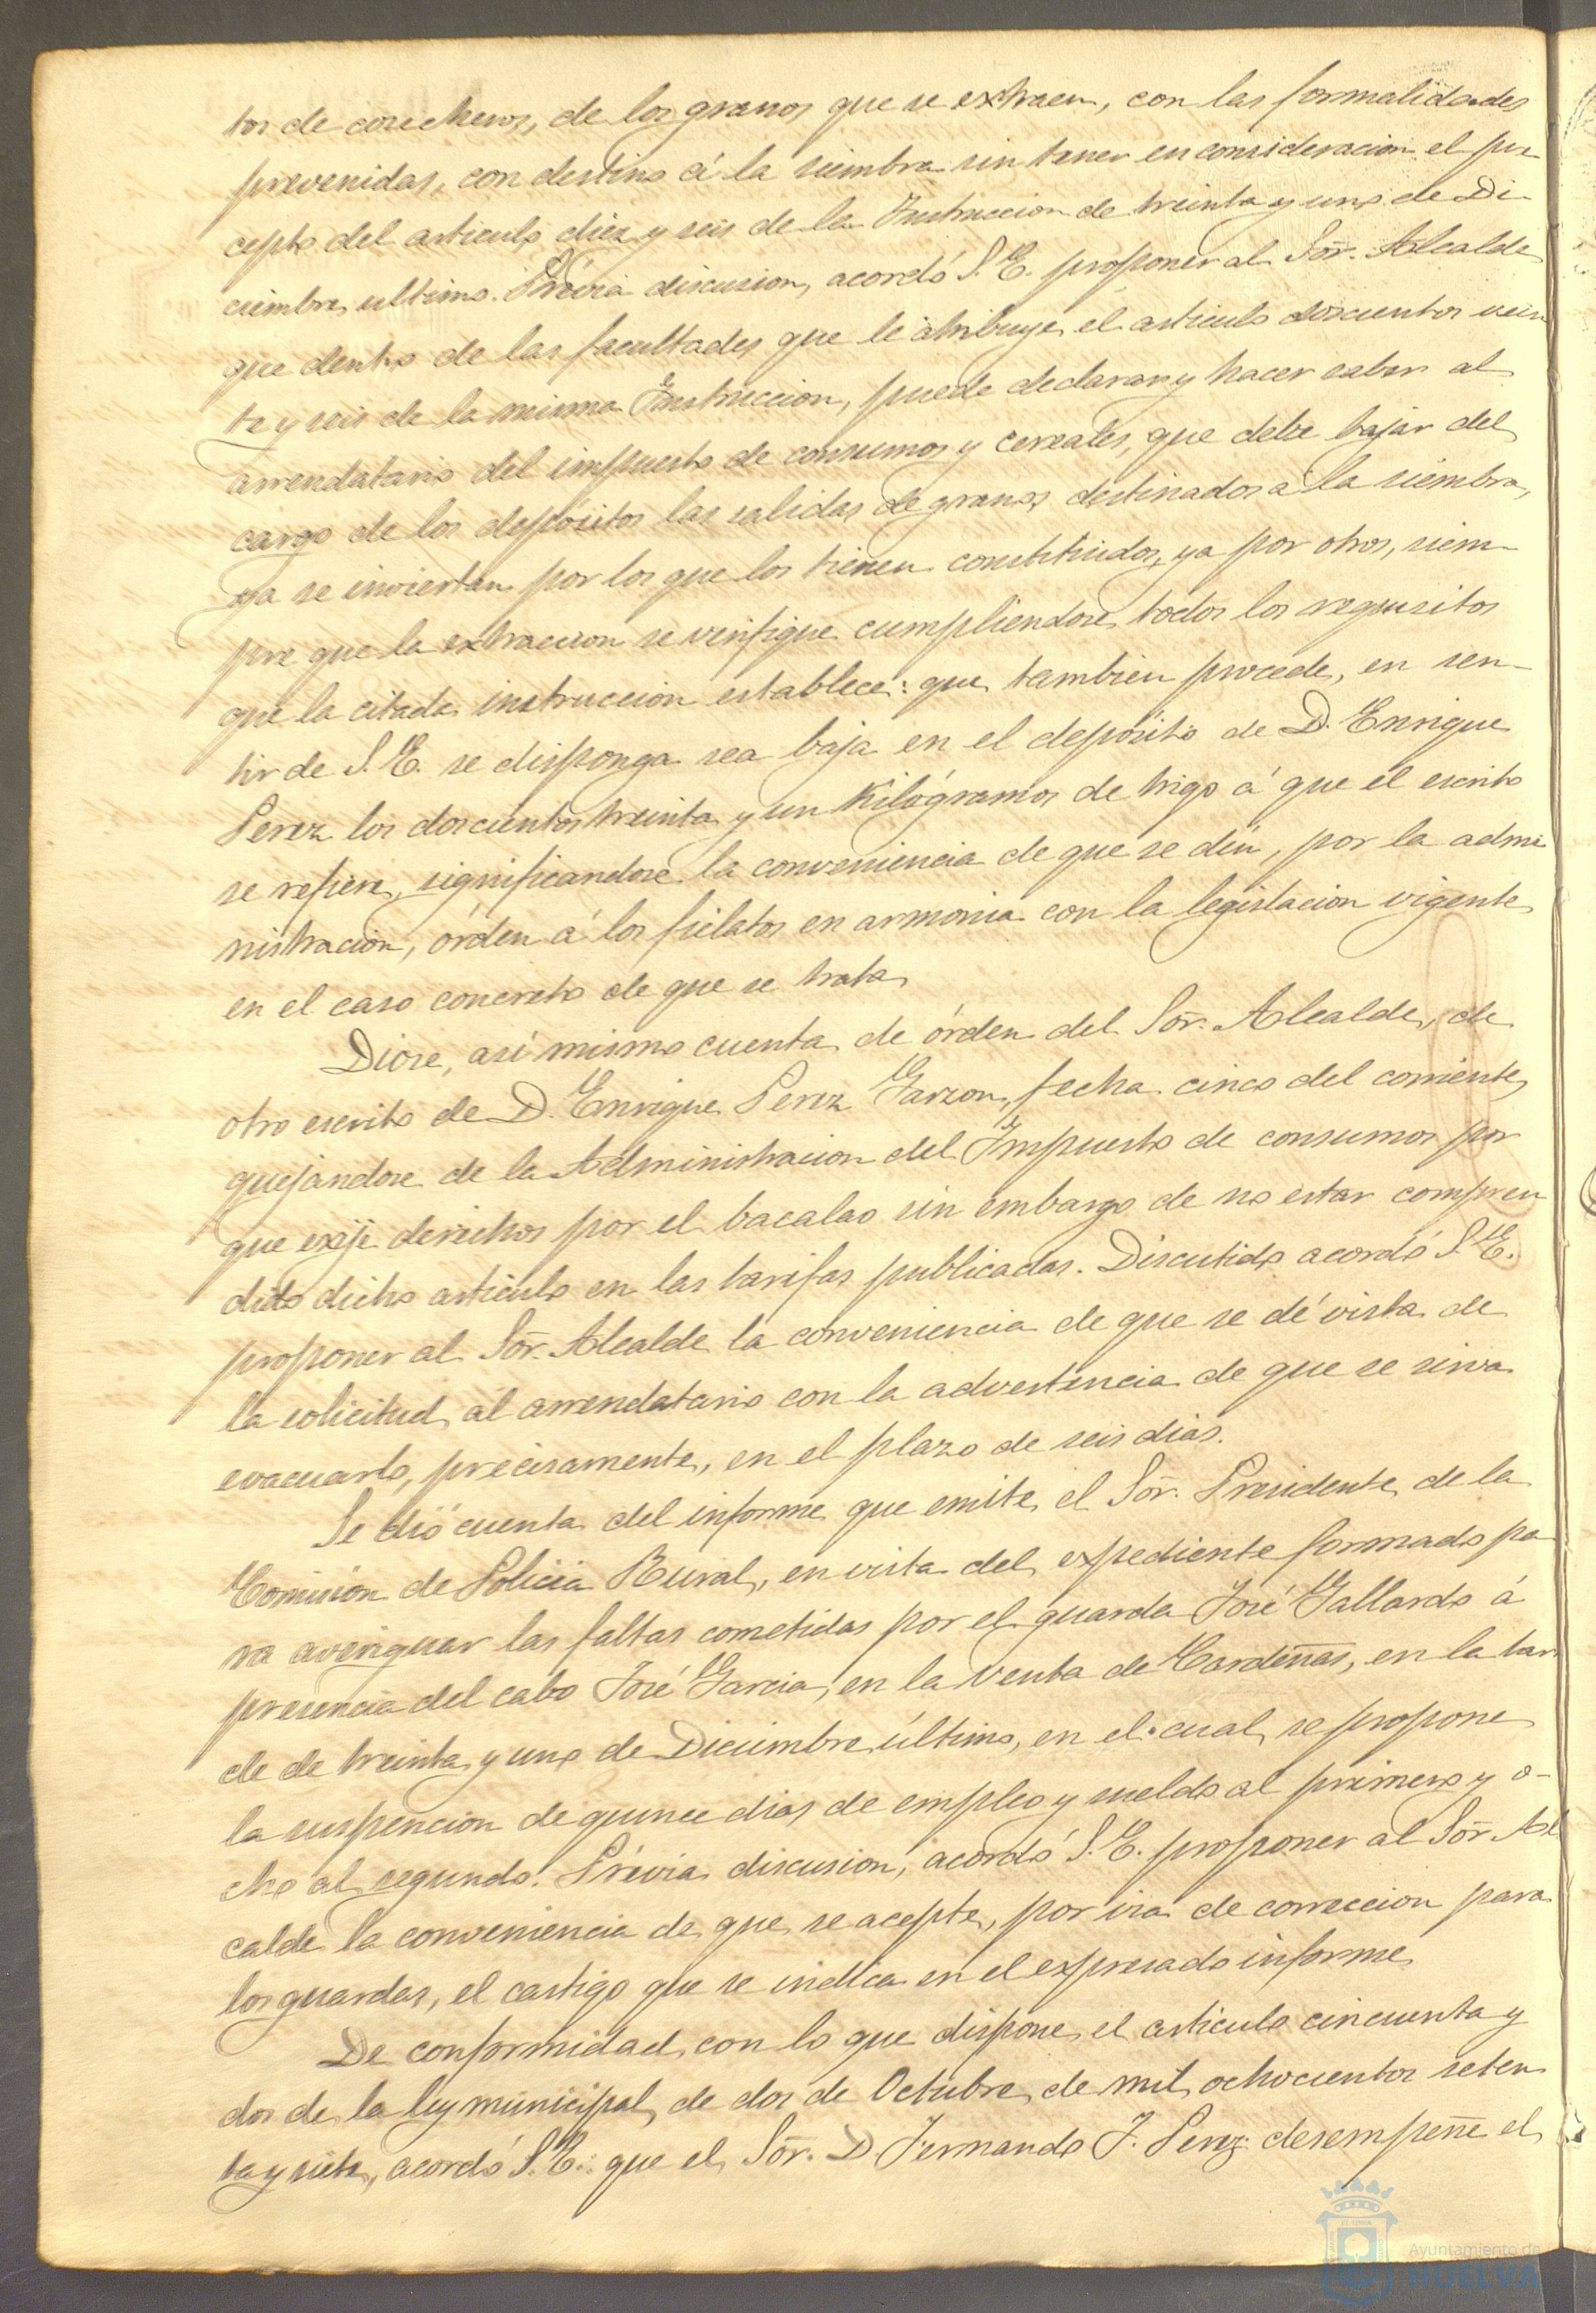 tos de cosecheros, de los granos que se extraen, con las formalidades
prevenidas, con destino á la siembra sin tener en consideracion el pre
cepto del articulo diez y seis de la Instruccion de treinta y uno de Di-
ciembre ultimo. Prévia discusion, acordó S. E. proponer al Sõr. Alcalde
que dentro de las facultades que le atribuye el articulo doscientos vein
te y seis de la misma Instruccion, puede declarar y hacer saber al
arrendatario del impuesto de consumos y cereales, que debe bajar del
cargo de los depósitos las salidas de granos destinados a la siembra,
ya se inviertan por los que los tienen constituidos, ya por otros, siem-
pre que la extraccion se verifique cumpliendose todos los requisitos
que la citada instruccion establece: que tambien procede, en sen-
tir de S. E. se disponga sea baja en el depósito de D. Enrique
Perez los doscientos treinta y un Kilógramos de trigo á que el escrito
se refiere, significandose la conveniencia de que se dén, por la admi
nistracion, órden á los fielatos en armonia con la legislacion vigente
en el caso concreto de que se trata
Diose, asi mismo cuenta de órden del Sõr. Alcalde, de
otro escrito de D. Enrique Perez Garzon, fecha cinco del corriente,
quejándose de la Administracion del Impuesto de consumos por
que exije derechos por el bacalao sin embargo de no estar compren
dido dicho articulo en las tarifas publicadas. Discutido acordó S. E.
proponer al Sõr. Alcalde la conveniencia de que se dé vista de
la solicitud al arrendatario con la advertencia de que se sirva
evacuarlo, precisamente, en el plazo de seis dias.
Se dió cuenta del informe que emite el Sõr. Presidente de la
Comision de Policia Rural, en vista del expediente formado pa
ra averiguar las faltas cometidas por el guarda José Gallardo á
presencia del cabo José Garcia, en la venta de Cardeñas, en la tar
de de treinta y uno de Diciembre último, en el cual se propone
la suspencion de quince dias de empleo y sueldo al primero y o-
cho al segundo. Prévia discusion, acordó S. E. proponer al Sõr. Al
calde la conveniencia de que se acepte, por via de correccion para
los guardas, el castigo que se indica en el expresado informe
De conformidad con lo que dispone el articulo cincuenta y
dos de la ley municipal de dos de Octubre de mil ochocientos seten
ta y siete, acordó S. E.: que el Sõr. D. Fernando J. Perez desempeñe el
Ayuntamiento de
HUELVA